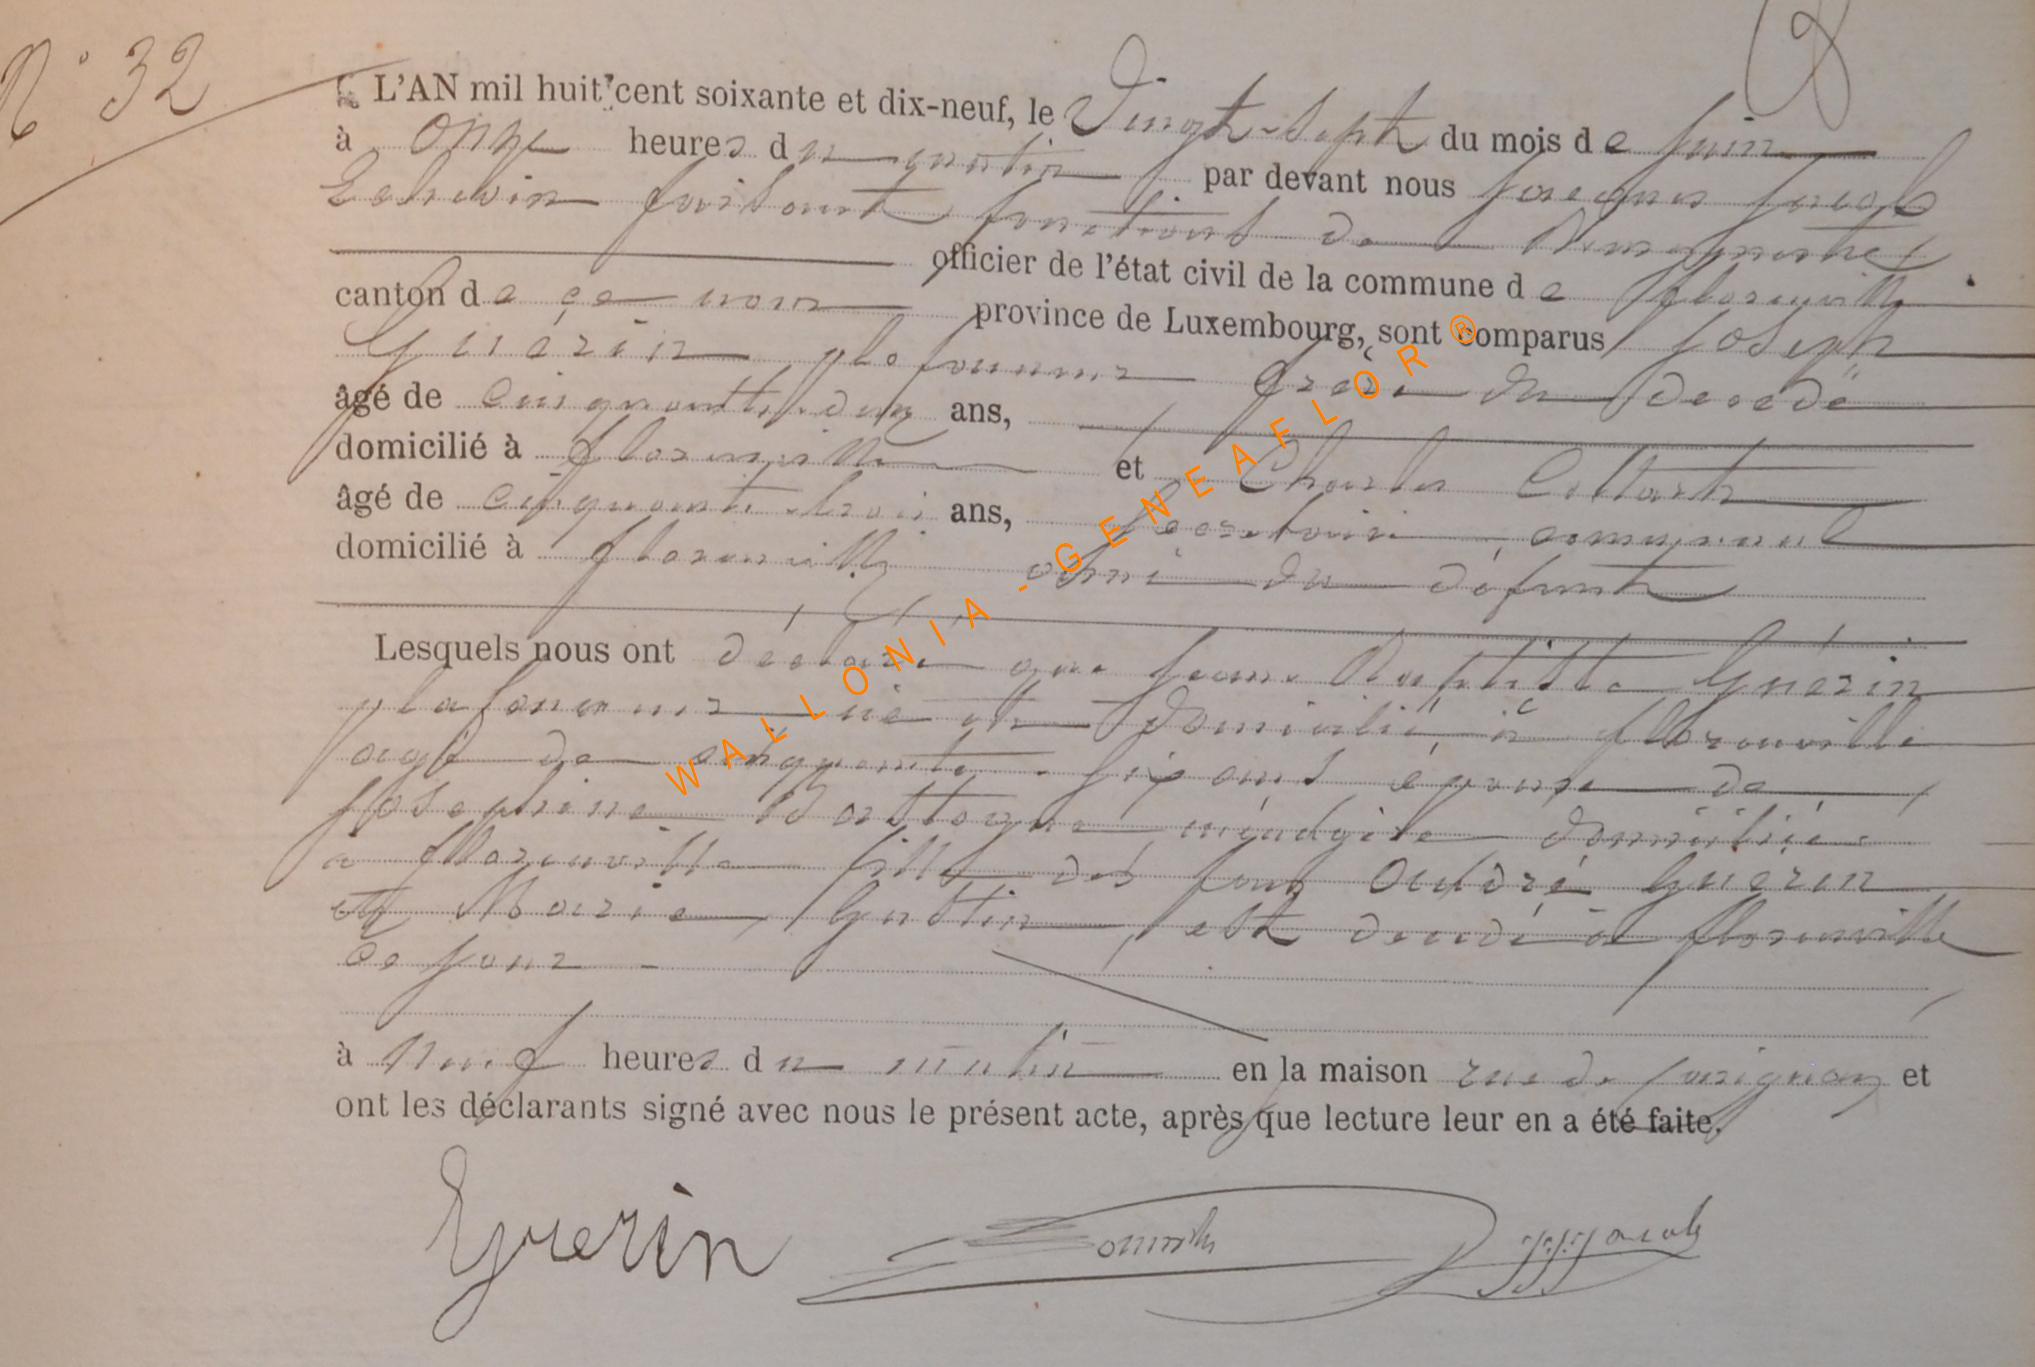 N° 32
L'AN mil huit cent soixante et dix-neuf, le Vingt-Sept du mois de Juin
à onze heures du matin par devant nous Jacques Jacob
faisant fonctions de Bourgmestre
officier de l'état civil de la commune de florenville
canton de ce nom province de Luxembourg, sont comparus Joseph
Guérin plafonneur frère du décédé
âgé de cinquante-deux ans,
domicilié à florenville et Charles Collart
âgé de cinquante-trois ans, Secrétaire communal
domicilié à florenville ami du défunt
Lesquels nous ont déclaré que Jean Baptiste Guérin
plafonneur né et domicilié à florenville
agé de cinquante-six ans époux de
Joséphine Bastogne ménagère domiciliée
à florenville fills des feux André Guérin
et Marie Gustin, est décédé à florenville
ce jour
à neuf heures du matin en la maison rue de Carignan et
ont les déclarants signé avec nous le présent acte, après que lecture leur en a été faite.
Guerin JJJacob
WALLONIA - GENEAFLOR ®